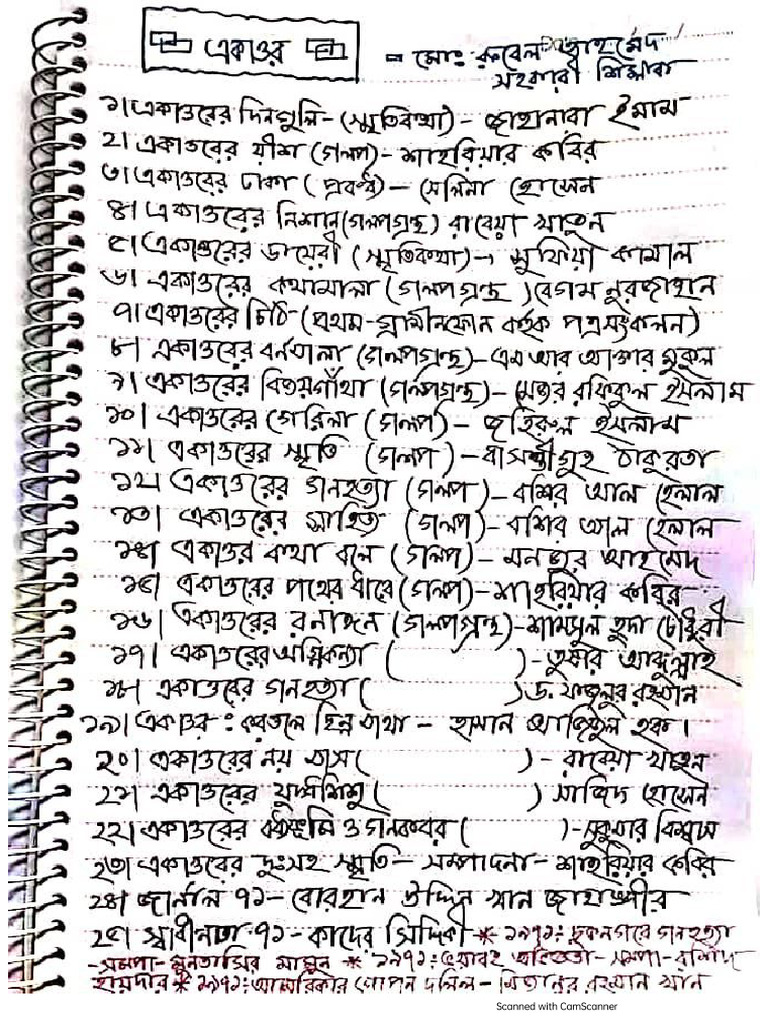 একাত্তর
- মোঃ রুবেল আহমেদ
সহকারী শিক্ষক
১। একাত্তরের দিনগুলি - (স্মৃতিকথা) - জাহানারা ইমাম
২। একাত্তরের যীশু (গল্প) - শাহরিয়ার কবির
৩। একাত্তরের ঢাকা (প্রবন্ধ) - সেলিনা হোসেন
৪। একাত্তরের নিশান (গল্পগ্রন্থ) রাবেয়া খাতুন
৫। একাত্তরের ডায়েরী (স্মৃতিকথা) → সুফিয়া কামাল
৬। একাত্তরের কথামালা (গল্পগ্রন্থ) বেগম নুরজাহান
৭। একাত্তরের চিঠি - (প্রথম - গ্রামীনফোন কর্তৃক পত্রসংকলন)
৮। একাত্তরের বর্নমালা (গল্পগ্রন্থ) - এম আর আক্তার মুকুল
৯। একাত্তরের বিজয়গাঁথা (গল্পগ্রন্থ) - মেজর রফিকুল ইসলাম
১০। একাত্তরের গেরিলা (গল্প) - জহিরুল ইসলাম
১১। একাত্তরের স্মৃতি (গল্প) - বাসন্তীগুহ ঠাকুরতা
১২। একাত্তরের গনহত্যা (গল্প) - বশির আল হেলাল
১৩। একাত্তরের সাহিত্য (গল্প) - বশির আল হেলাল
১৪। একাত্তর কথা বলে (গল্প) - মনজুর আহমেদ
১৫। একাত্তরের পথের ধারে (গল্প) - শাহরিয়ার কবির
১৬। একাত্তরের রনাঙ্গন (গল্পগ্রন্থ) - শামসুল হুদা চৌধুরী
১৭। একাত্তরের অগ্নিকন্যা ( ) - তুষার আব্দুল্লাহ
১৮। একাত্তরের গনহত্যা ( ) ড. ফজলুর রহমান
১৯। একাত্তর : করতলে ছিন্ন মাথা - হাসান আজিজুল হক।
২০। একাত্তরের নয় মাস ( ) - রাবেয়া খাতুন
২১। একাত্তরের যুদ্ধশিশু ( ) সাজিদ হোসেন
২২। একাত্তরের বধ্যভূমি ও গনকবর ( ) - সুকুমার বিশ্বাস
২৩। একাত্তরের দুঃসহ স্মৃতি - সম্পাদনা - শাহরিয়ার কবির
২৪। জার্নাল ৭১ - বোরহান উদ্দিন খান জাহাঙ্গীর
২৫। স্বাধীনতা ৭১ - কাদের সিদ্দিকী * ১৯৭১: চুকনগরে গনহত্যা
- সম্পা - মুনতাসির মামুন * ১৯৭১: ভয়াবহ অভিজ্ঞতা - সম্পা - রশিদ
হায়দার * ১৯৭১: আমেরিকার গোপন দলিল - মিজানুর রহমান খান
Scanned with CamScanner